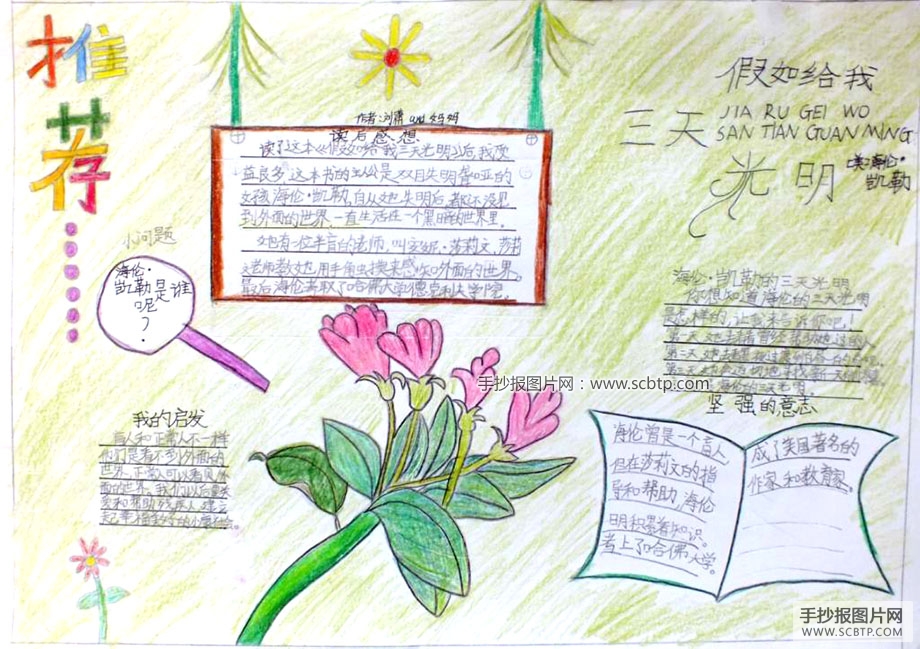 推
荐
假如给我
三天 JIA RU GEI WO
SAN TIAN GUAN MING
光明
[美]海伦·
凯勒
作者:刘肃 and 妈妈
读后感想
读了这本《假如给我三天光明》后,我受
益良多。这本书的主人公是双目失明聋哑的
女孩海伦·凯勒,自从她失明后,都还没见
到外面的世界,一直生活在一个黑暗的世界里。
她有一位半盲的老师,叫安妮·莎莉文,莎莉
文老师教她用手触摸来感知外面的世界。
最后海伦考取了哈佛大学德克利夫学院。
小问题
海伦·
凯勒是谁
呢?
海伦·凯勒的三天光明
你想知道海伦的三天光明
是怎样的,让我来告诉你吧!
海伦的三天光明
坚强的意志
海伦曾是一个盲人
但在莎莉文的指
导和帮助,海伦
明积累着知识。
考上了哈佛大学。
成了美国著名的
作家和教育家。
我的启发
盲人和正常人不一样
他们是看不到外面的
世界,正常人可以看见外
面的世界。我们以后要关
爱和帮助残疾人
手抄报图片网:www.scbtp.com
手抄报图片网
WWW.SCBTP.COM